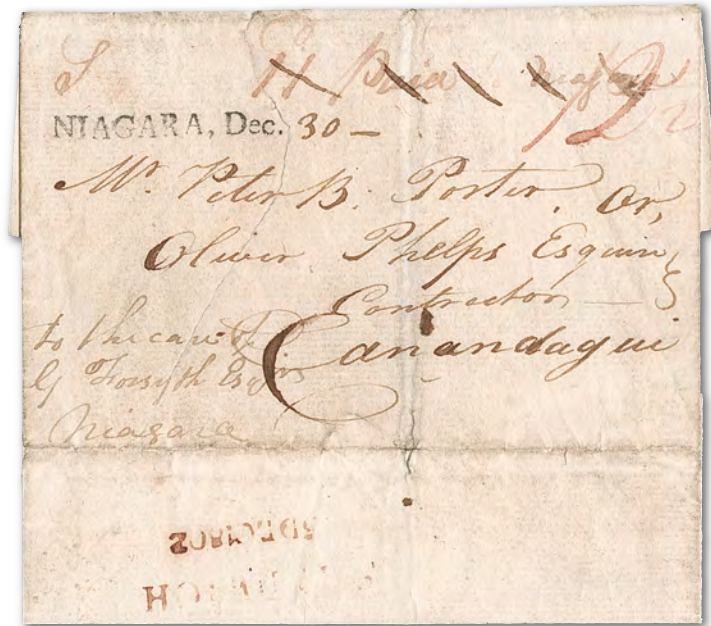 S Paid
NIAGARA, Dec. 30 –
Mr. Peter B. Porter, or,
Oliver Phelps Esquire
Contractor —
Canandagui
to the care of
G Forsyth Esqr
Niagara
DEC 1802